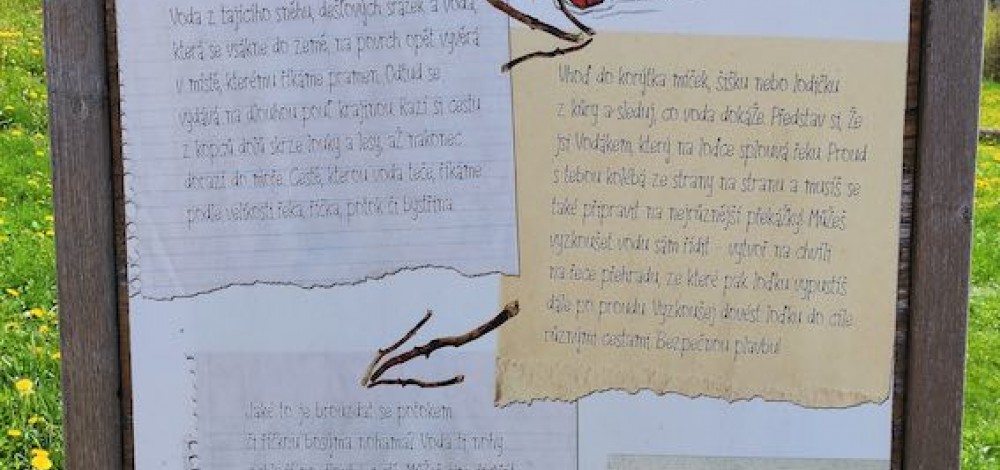 Voda z tajícího sněhu, dešťových srážek a voda,
která se vsákne do země, na povrch opět vyvěrá
v místě, kterému říkáme pramen. Odtud se
vydává na dlouhou pouť krajinou. Razí si cestu
z kopců dolů skrze louky a lesy, až nakonec
dorazí do moře. Cestě, kterou voda teče, říkáme
podle velikosti řeka, říčka, potok či bystřina.
Vhoď do korýtka míček, šišku nebo lodičku
z kůry a sleduj, co voda dokáže. Představ si, že
jsi Vodákem, který na loďce splouvá řeku. Proud
s tebou kolébá ze strany na stranu a musíš se
také připravit na nejrůznější překážky! Můžeš
vyzkoušet vodu sám řídit - vytvoř na chvíli
na řece přehradu, ze které pak loďku vypustíš
dále po proudu. Vyzkoušej dovést loďku do cíle
různými cestami. Bezpečnou plavbu!
Jaké to je brouzdat se potokem
či říčkou bosýma nohama? Voda ti nohy